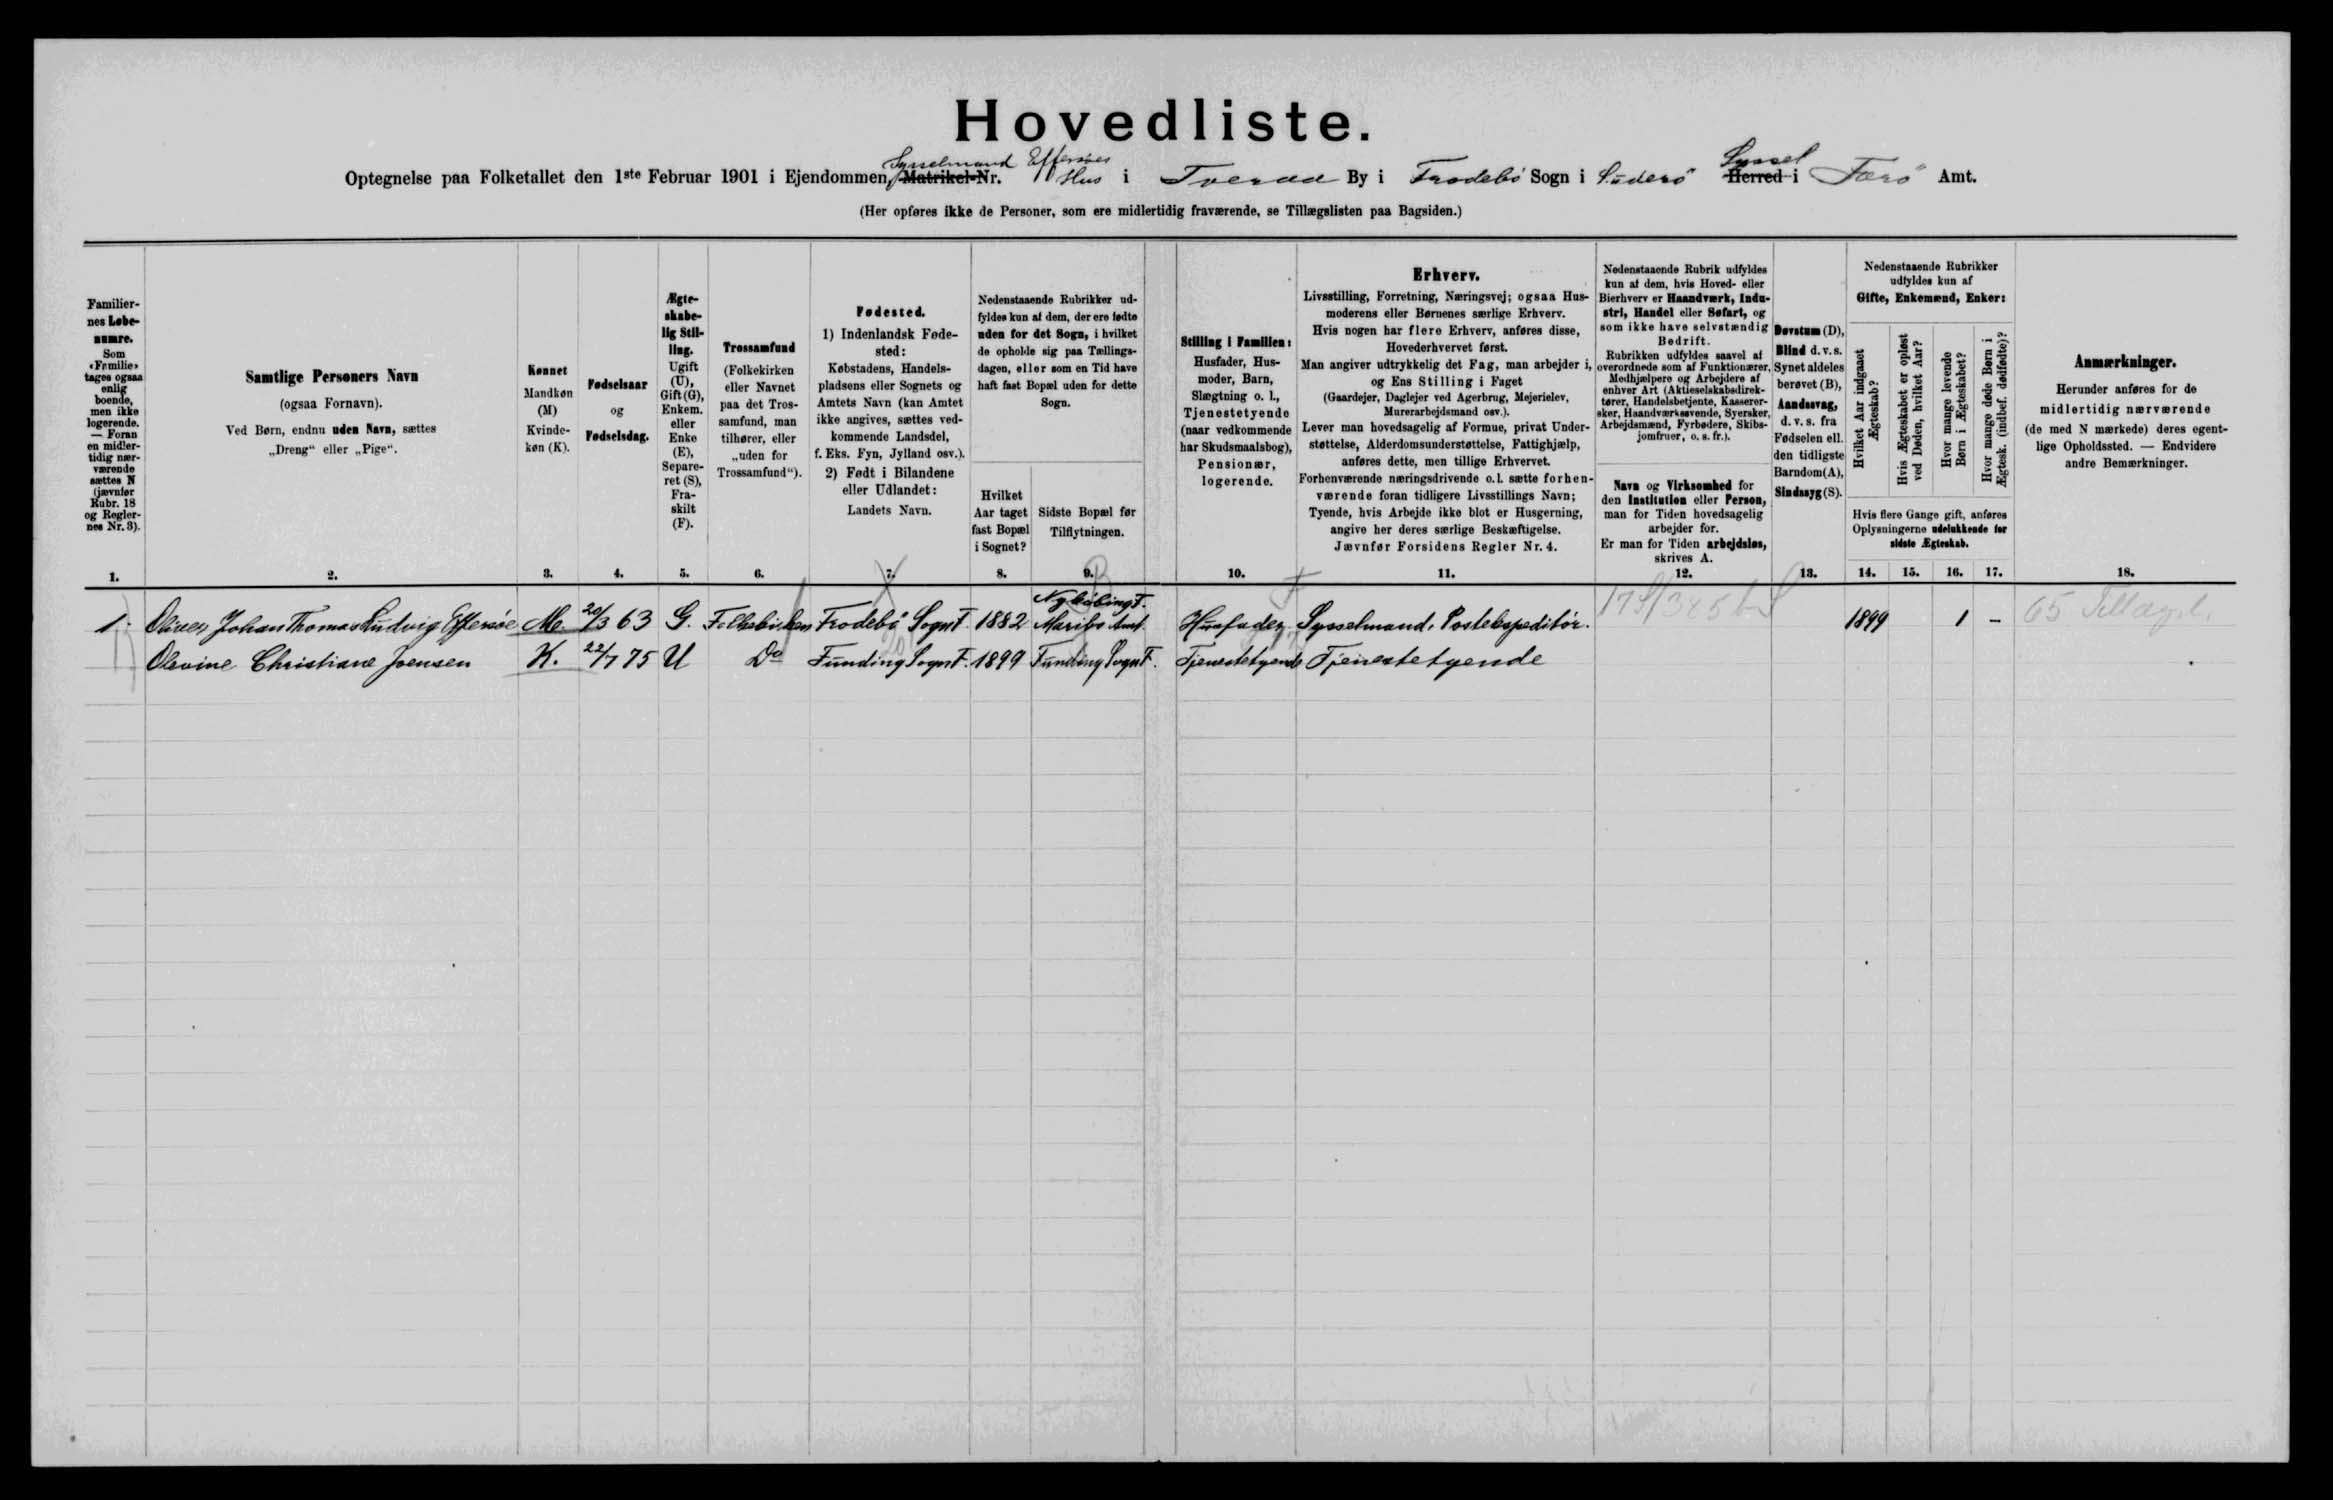 Hovedliste.
Optegnelse paa Folketallet den 1ste Februar 1901 i Ejendommen, Matrikel-Nr. Sysselmand Effersöes Hus i Tveraa By i Frodebö Sogn i Süderö Herred Syssel i Færö Amt.
(Her opføres ikke de Personer, som ere midlertidig fraværende, se Tillægslisten paa Bagsiden.)
Familier-
nes Løbe-
numre.
Som
«Familie»
tages ogsaa
enlig
boende,
men ikke
logerende.
— Foran
en midler-
tidig nær-
værende
sættes N
(jævnfør
Rubr. 18
og Regler-
nes Nr. 3).
1.
Samtlige Personers Navn
(ogsaa Fornavn).
Ved Børn, endnu uden Navn, sættes
„Dreng“ eller „Pige“.
2.
Kønnet
Mandkøn
(M)
Kvinde-
køn (K).
3.
Fødselsaar
og
Fødselsdag.
4.
Ægte-
skabe-
lig Stil-
ling.
Ugift
(U),
Gift (G),
Enkem.
eller
Enke
(E),
Separe-
ret (S),
Fra-
skilt
(F).
5.
Trossamfund
(Folkekirken
eller Navnet
paa det Tros-
samfund, man
tilhører, eller
„uden for
Trossamfund“).
6.
Fødested.
1) Indenlandsk Føde-
sted:
Købstadens, Handels-
pladsens eller Sognets og
Amtets Navn (kan Amtet
ikke angives, sættes ved-
kommende Landsdel,
f. Eks. Fyn, Jylland osv.).
2) Født i Bilandene
eller Udlandet:
Landets Navn.
7.
Nedenstaaende Rubrikker ud-
fyldes kun af dem, der ere fødte
uden for det Sogn, i hvilket
de opholde sig paa Tællings-
dagen, eller som en Tid have
haft fast Bopæl uden for dette
Sogn.
Hvilket
Aar taget
fast Bopæl
i Sognet?
8.
Sidste Bopæl før
Tilflytningen.
9.
Stilling i Familien:
Husfader, Hus-
moder, Barn,
Slægtning o. l.,
Tjenestetyende
(naar vedkommende
har Skudsmaalsbog),
Pensionær,
logerende.
10.
Erhverv.
Livsstilling, Forretning, Næringsvej; ogsaa Hus-
moderens eller Børnenes særlige Erhverv.
Hvis nogen har flere Erhverv, anføres disse,
Hovederhvervet først.
Man angiver udtrykkelig det Fag, man arbejder i,
og Ens Stilling i Faget
(Gaardejer, Daglejer ved Agerbrug, Mejerielev,
Murerarbejdsmand osv.).
Lever man hovedsagelig af Formue, privat Under-
støttelse, Alderdomsunderstøttelse, Fattighjælp,
anføres dette, men tillige Erhvervet.
Forhenværende næringsdrivende o. l. sætte forhen-
værende foran tidligere Livsstillings Navn;
Tyende, hvis Arbejde ikke blot er Husgerning,
angive her deres særlige Beskæftigelse.
Jævnfør Forsidens Regler Nr. 4.
11.
Nedenstaaende Rubrik udfyldes
kun af dem, hvis Hoved- eller
Bierhverv er Haandværk, Indu-
stri, Handel eller Søfart, og
som ikke have selvstændig
Bedrift.
Rubrikken udfyldes saavel af
overordnede som af Funktionærer,
Medhjælpere og Arbejdere af
enhver Art (Aktieselskabsdirek-
tører, Handelsbetjente, Kasserer-
sker, Haandværkssvende, Syersker,
Arbejdsmænd, Fyrbødere, Skibs-
jomfruer, o. s. fr.).
Navn og Virksomhed for
den Institution eller Person,
man for Tiden hovedsagelig
arbejder for.
Er man for Tiden arbejdsløs,
skrives A.
12.
Døvstum (D),
Blind d. v. s.
Synet aldeles
berøvet (B),
Aandssvag,
d. v. s. fra
Fødselen ell.
den tidligste
Barndom (A),
Sindssyg (S).
13.
Nedenstaaende Rubrikker
udfyldes kun af
Gifte, Enkemænd, Enker:
Hvilket Aar indgaaet
Ægteskab?
Hvis Ægteskabet er opløst
ved Døden, hvilket Aar?
Hvor mange levende
Børn i Ægteskabet?
Hvor mange døde Børn i
Ægtesk. (indbef. dødfødte)?
Hvis flere Gange gift, anføres
Oplysningerne udelukkende for
sidste Ægteskab.
14. 15. 16. 17.
Anmærkninger.
Herunder anføres for de
midlertidig nærværende
(de med N mærkede) deres egent-
lige Opholdssted. — Endvidere
andre Bemærkninger.
18.
1. Oliver Johan Thomas Ludvig Effersöe M. 20/3 63 G. Folkekirken Frodebö Sogn F. 1882 Nyköbing F. Maribo Amt. Husfader Sysselmand, Postekspeditör. 1899 1 - 65 Tillægsl.
Olevine Christiane Joensen K. 22/7 75 U Do Funding Sogn F. 1899 Funding Sogn F. Tjenestetyende Tjenestetyende